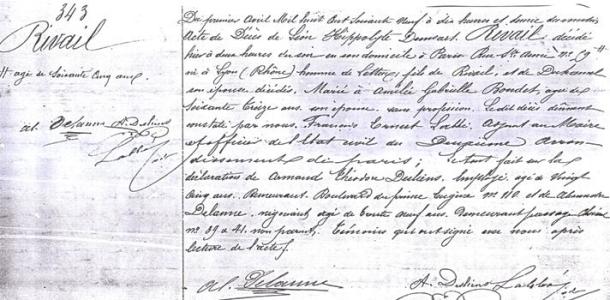 343
Rivail
# agé de soixante cinq ans.
Al. Delanne A. Desliens
Du premier Avril Mil huit Cent Soixante Neuf à dix heures et demie du matin
Acte de Décès de Léon Hippolyte Denisart Rivail décédé
hier à deux heures du soir en son domicile à Paris Rue Ste Anne no 59 #
né à Lyon (Rhône) homme de Lettres, fils de Rivail, et de Duhamel
son épouse décédés, Marié à Amélie Gabrielle Boudet, agée de
soixante Treize ans. son épouse sans profession. Ledit décès dûment
constaté par nous. François Ernest Labbé. Adjoint au Maire
et officier de l'état civil du Deuxième arron-
dissement de paris; et fait sur la
déclaration de Armand Théodore Desliens. Employé. agé de Vingt
cinq ans. Demeurant. Boulevard du prince Eugène no 110 et de Alexandre
Delanne, négociant agé de trente Neuf ans. Demeurant passage
no 39 & 41. non parent, Témoins qui ont signé avec nous après
lecture de l'acte.
al. Delanne A. Desliens